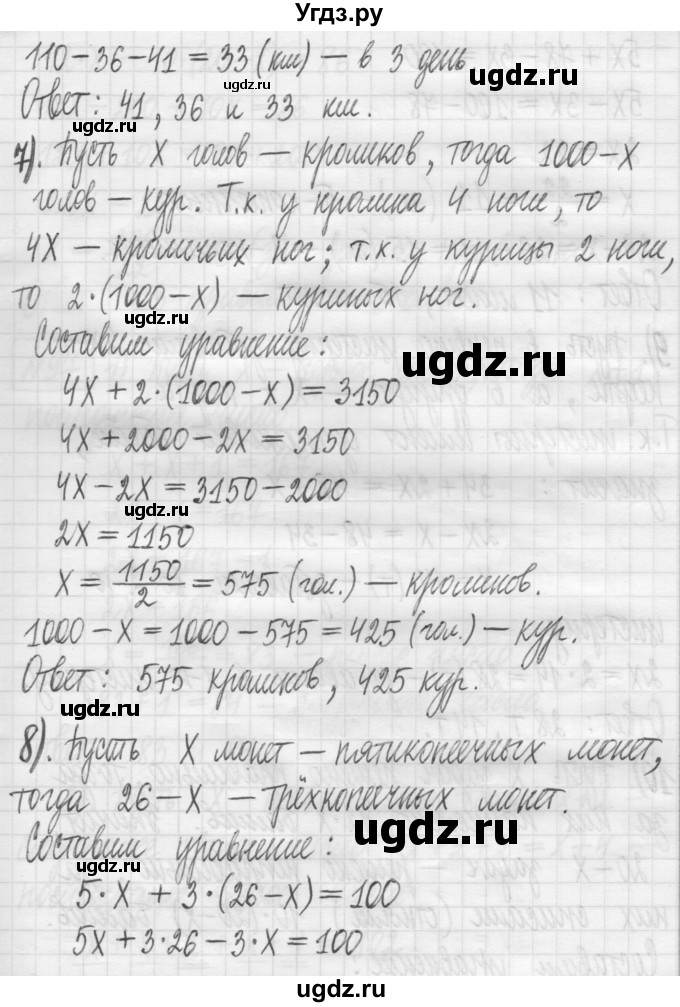 Угдз.ру
110-36-41=33(км) — в 3 день
Ответ: 41, 36 и 33 км.
7). Пусть X голов — кроликов, тогда 1000-X
голов — кур. Т.к. у кролика 4 ноги, то
4X — кроличьих ног; т.к. у курицы 2 ноги,
то 2·(1000-X) — куриных ног.
Составим уравнение:
4X+2·(1000-X)=3150
4X+2000-2X=3150
4X-2X=3150-2000
2X=1150
X=1150/2=575 (гол.) — кроликов.
1000-X=1000-575=425 (гол.) — кур.
Ответ: 575 кроликов, 425 кур.
8). Пусть X монет — пятикопеечных монет,
тогда 26-X — трёхкопеечных монет.
Составим уравнение:
5·X+3·(26-X)=100
5X+3·26-3·X=100
ugdz.ru
ugdz.ru
ugdz.ru
ugdz.ru
ugdz.ru
ugdz.ru
ugdz.ru
ugdz.ru
ugdz.ru
ugdz.ru
ugdz.ru
ugdz.ru
ugdz.ru